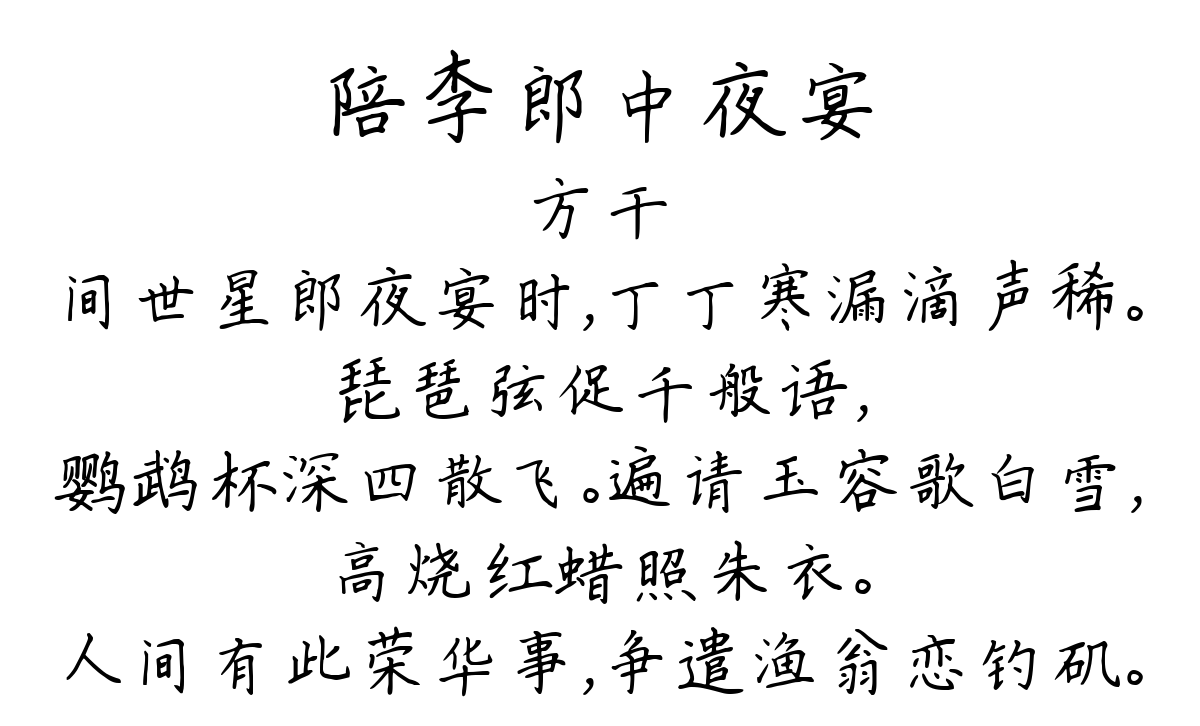 陪李郎中夜宴
方干
间世星郎夜宴时,丁丁寒漏滴声稀。
琵琶弦促千般语,
鹦鹉杯深四散飞。遍请玉容歌白雪,
高烧红蜡照朱衣。
人间有此荣华事,争遣渔翁恋钓矶。